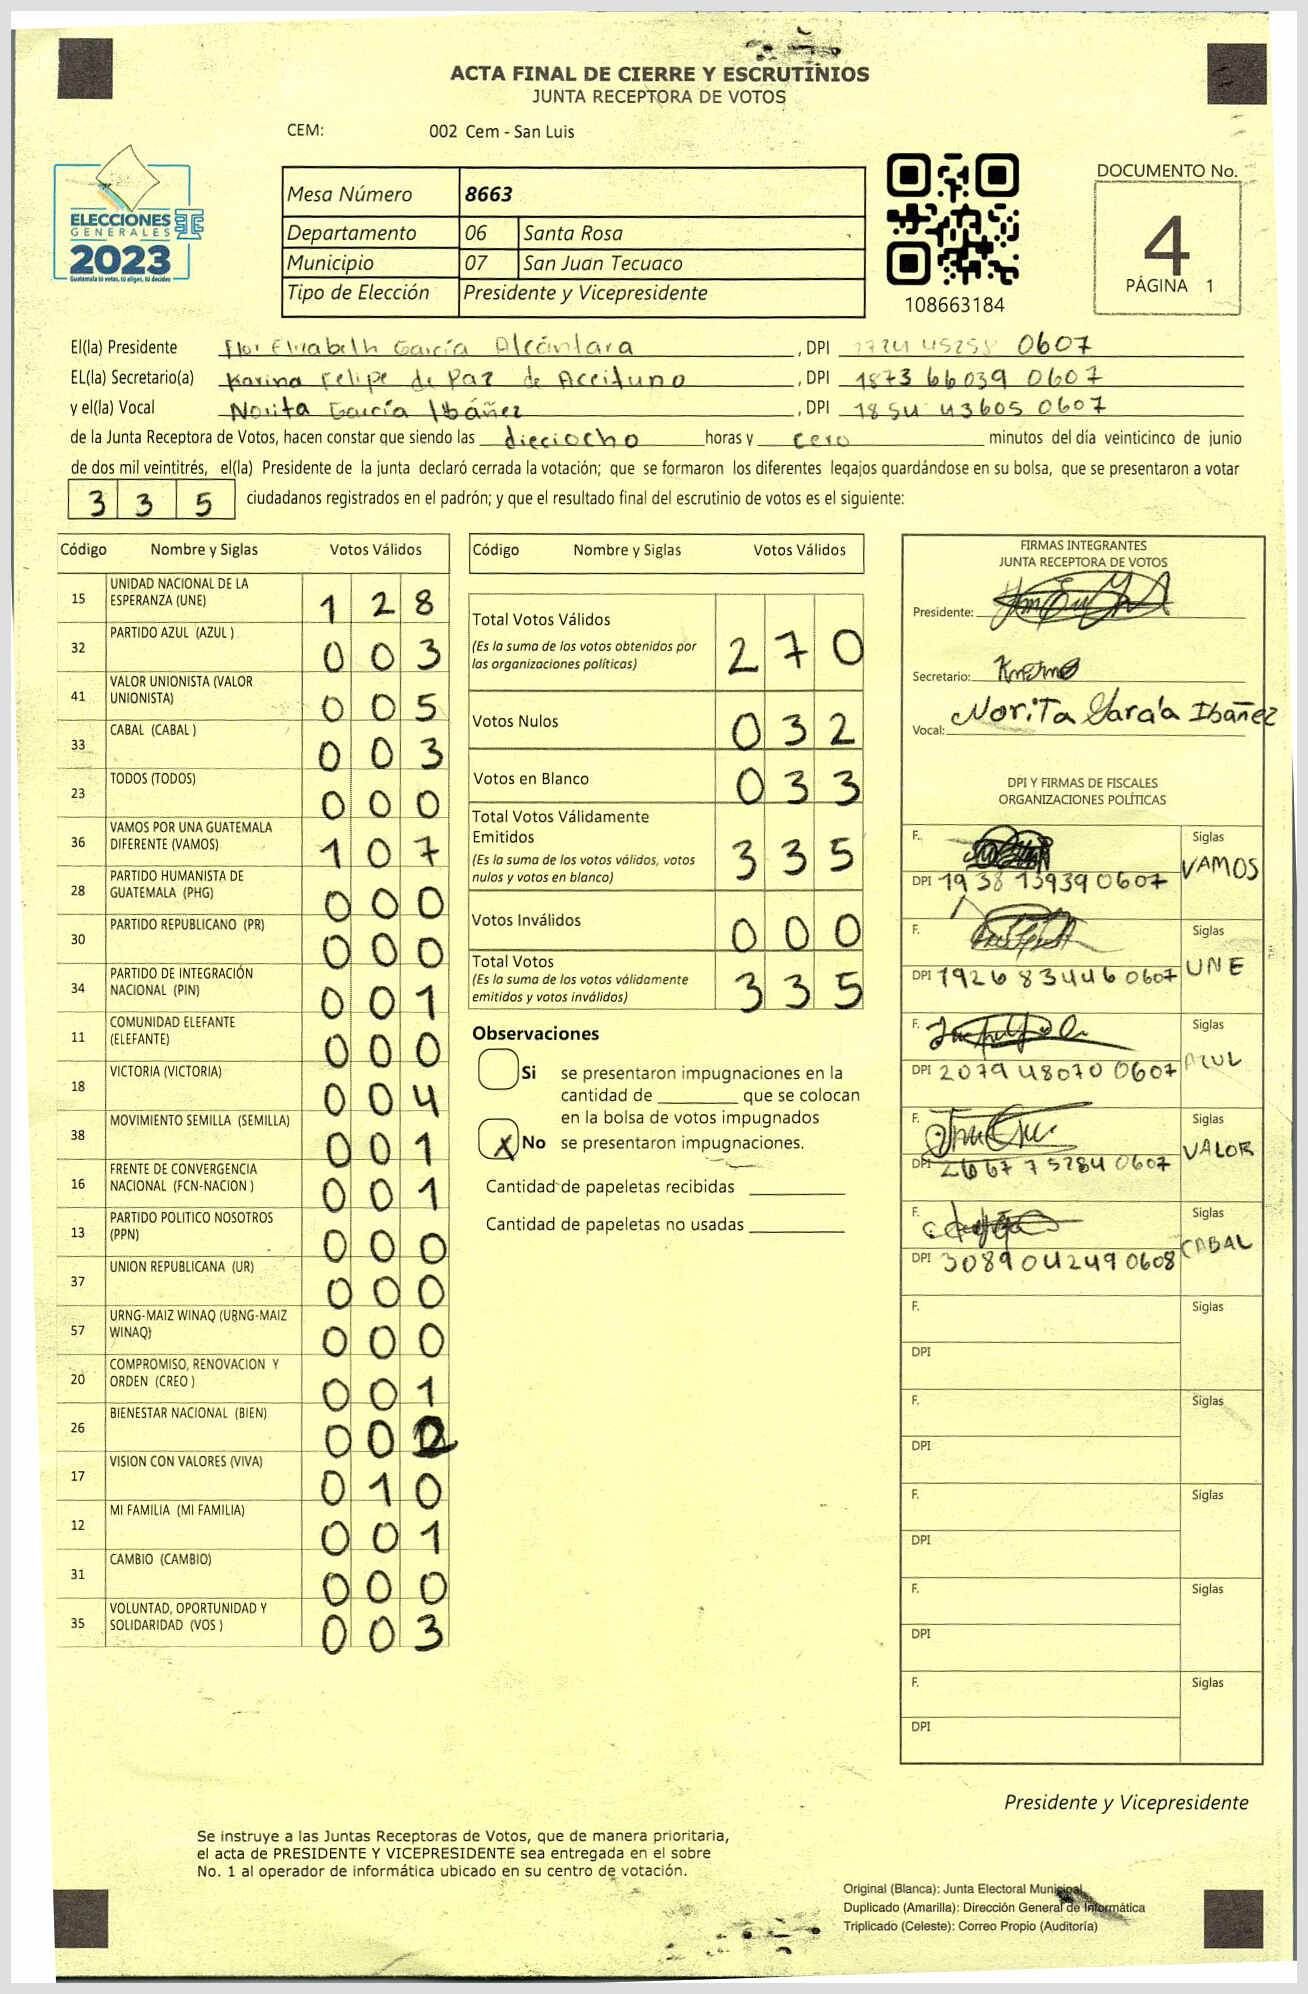 ACTA FINAL DE CIERRE Y ESCRUTINIOS
JUNTA RECEPTORA DE VOTOS
CEM: 002 Cem - San Luis
ELECCIONES
GENERALES
2023
Guatemala tú votas, tú eliges, tú decides
Mesa Número 8663
Departamento 06 Santa Rosa
Municipio 07 San Juan Tecuaco
Tipo de Elección Presidente y Vicepresidente
108663184
DOCUMENTO No.
4
PÁGINA 1
El(la) Presidente Flor Elizabeth García Alcántara, DPI 0607
EL(la) Secretario(a) Karina Felipe de Paz de Aceituno, DPI 1873 66039 0607
y el(la) Vocal Norita García Ibáñez, DPI 1854 43605 0607
de la Junta Receptora de Votos, hacen constar que siendo las dieciocho horas y cero minutos del día veinticinco de junio
de dos mil veintitrés, el(la) Presidente de la junta declaró cerrada la votación; que se formaron los diferentes legajos guardándose en su bolsa, que se presentaron a votar
335 ciudadanos registrados en el padrón; y que el resultado final del escrutinio de votos es el siguiente:
Código Nombre y Siglas Votos Válidos
15 UNIDAD NACIONAL DE LA ESPERANZA (UNE) 128
32 PARTIDO AZUL (AZUL ) 003
41 VALOR UNIONISTA (VALOR UNIONISTA) 005
33 CABAL (CABAL ) 003
23 TODOS (TODOS) 000
36 VAMOS POR UNA GUATEMALA DIFERENTE (VAMOS) 107
28 PARTIDO HUMANISTA DE GUATEMALA (PHG) 000
30 PARTIDO REPUBLICANO (PR) 000
34 PARTIDO DE INTEGRACIÓN NACIONAL (PIN) 001
11 COMUNIDAD ELEFANTE (ELEFANTE) 000
18 VICTORIA (VICTORIA) 004
38 MOVIMIENTO SEMILLA (SEMILLA) 001
16 FRENTE DE CONVERGENCIA NACIONAL (FCN-NACION ) 001
13 PARTIDO POLITICO NOSOTROS (PPN) 000
37 UNION REPUBLICANA (UR) 000
57 URNG-MAIZ WINAQ (URNG-MAIZ WINAQ) 000
20 COMPROMISO, RENOVACION Y ORDEN (CREO ) 001
26 BIENESTAR NACIONAL (BIEN) 002
17 VISION CON VALORES (VIVA) 010
12 MI FAMILIA (MI FAMILIA) 001
31 CAMBIO (CAMBIO) 000
35 VOLUNTAD, OPORTUNIDAD Y SOLIDARIDAD (VOS ) 003
Código Nombre y Siglas Votos Válidos
Total Votos Válidos 270
(Es la suma de los votos obtenidos por
las organizaciones políticas)
Votos Nulos 032
Votos en Blanco 033
Total Votos Válidamente
Emitidos 335
(Es la suma de los votos válidos, votos
nulos y votos en blanco)
Votos Inválidos 000
Total Votos 335
(Es la suma de los votos válidamente
emitidos y votos inválidos)
Observaciones
Si se presentaron impugnaciones en la
cantidad de ________ que se colocan
en la bolsa de votos impugnados
X No se presentaron impugnaciones.
Cantidad de papeletas recibidas
Cantidad de papeletas no usadas
FIRMAS INTEGRANTES
JUNTA RECEPTORA DE VOTOS
Presidente:
Secretario:
Vocal: Norita García Ibáñez
DPI Y FIRMAS DE FISCALES
ORGANIZACIONES POLÍTICAS
F. Siglas VAMOS
DPI 1938 139390607
F. Siglas UNE
DPI 1926 83446 0607
F. Siglas AZUL
DPI 2079 48070 0607
F. Siglas VALOR
DPI 2667 75284 0607
F. Siglas CABAL
DPI 3089 04249 0608
F. Siglas
DPI
F. Siglas
DPI
F. Siglas
DPI
F. Siglas
DPI
F. Siglas
DPI
Presidente y Vicepresidente
Se instruye a las Juntas Receptoras de Votos, que de manera prioritaria,
el acta de PRESIDENTE Y VICEPRESIDENTE sea entregada en el sobre
No. 1 al operador de informática ubicado en su centro de votación.
Original (Blanca): Junta Electoral Municipal
Duplicado (Amarilla): Dirección General de Informática
Triplicado (Celeste): Correo Propio (Auditoría)